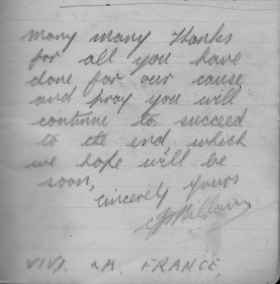 many many thanks
for all you have
done for our cause,
and pray you will
continue to succeed
to the end, which
we hope will be
soon,
Sincerely yours
VIVE LA FRANCE,